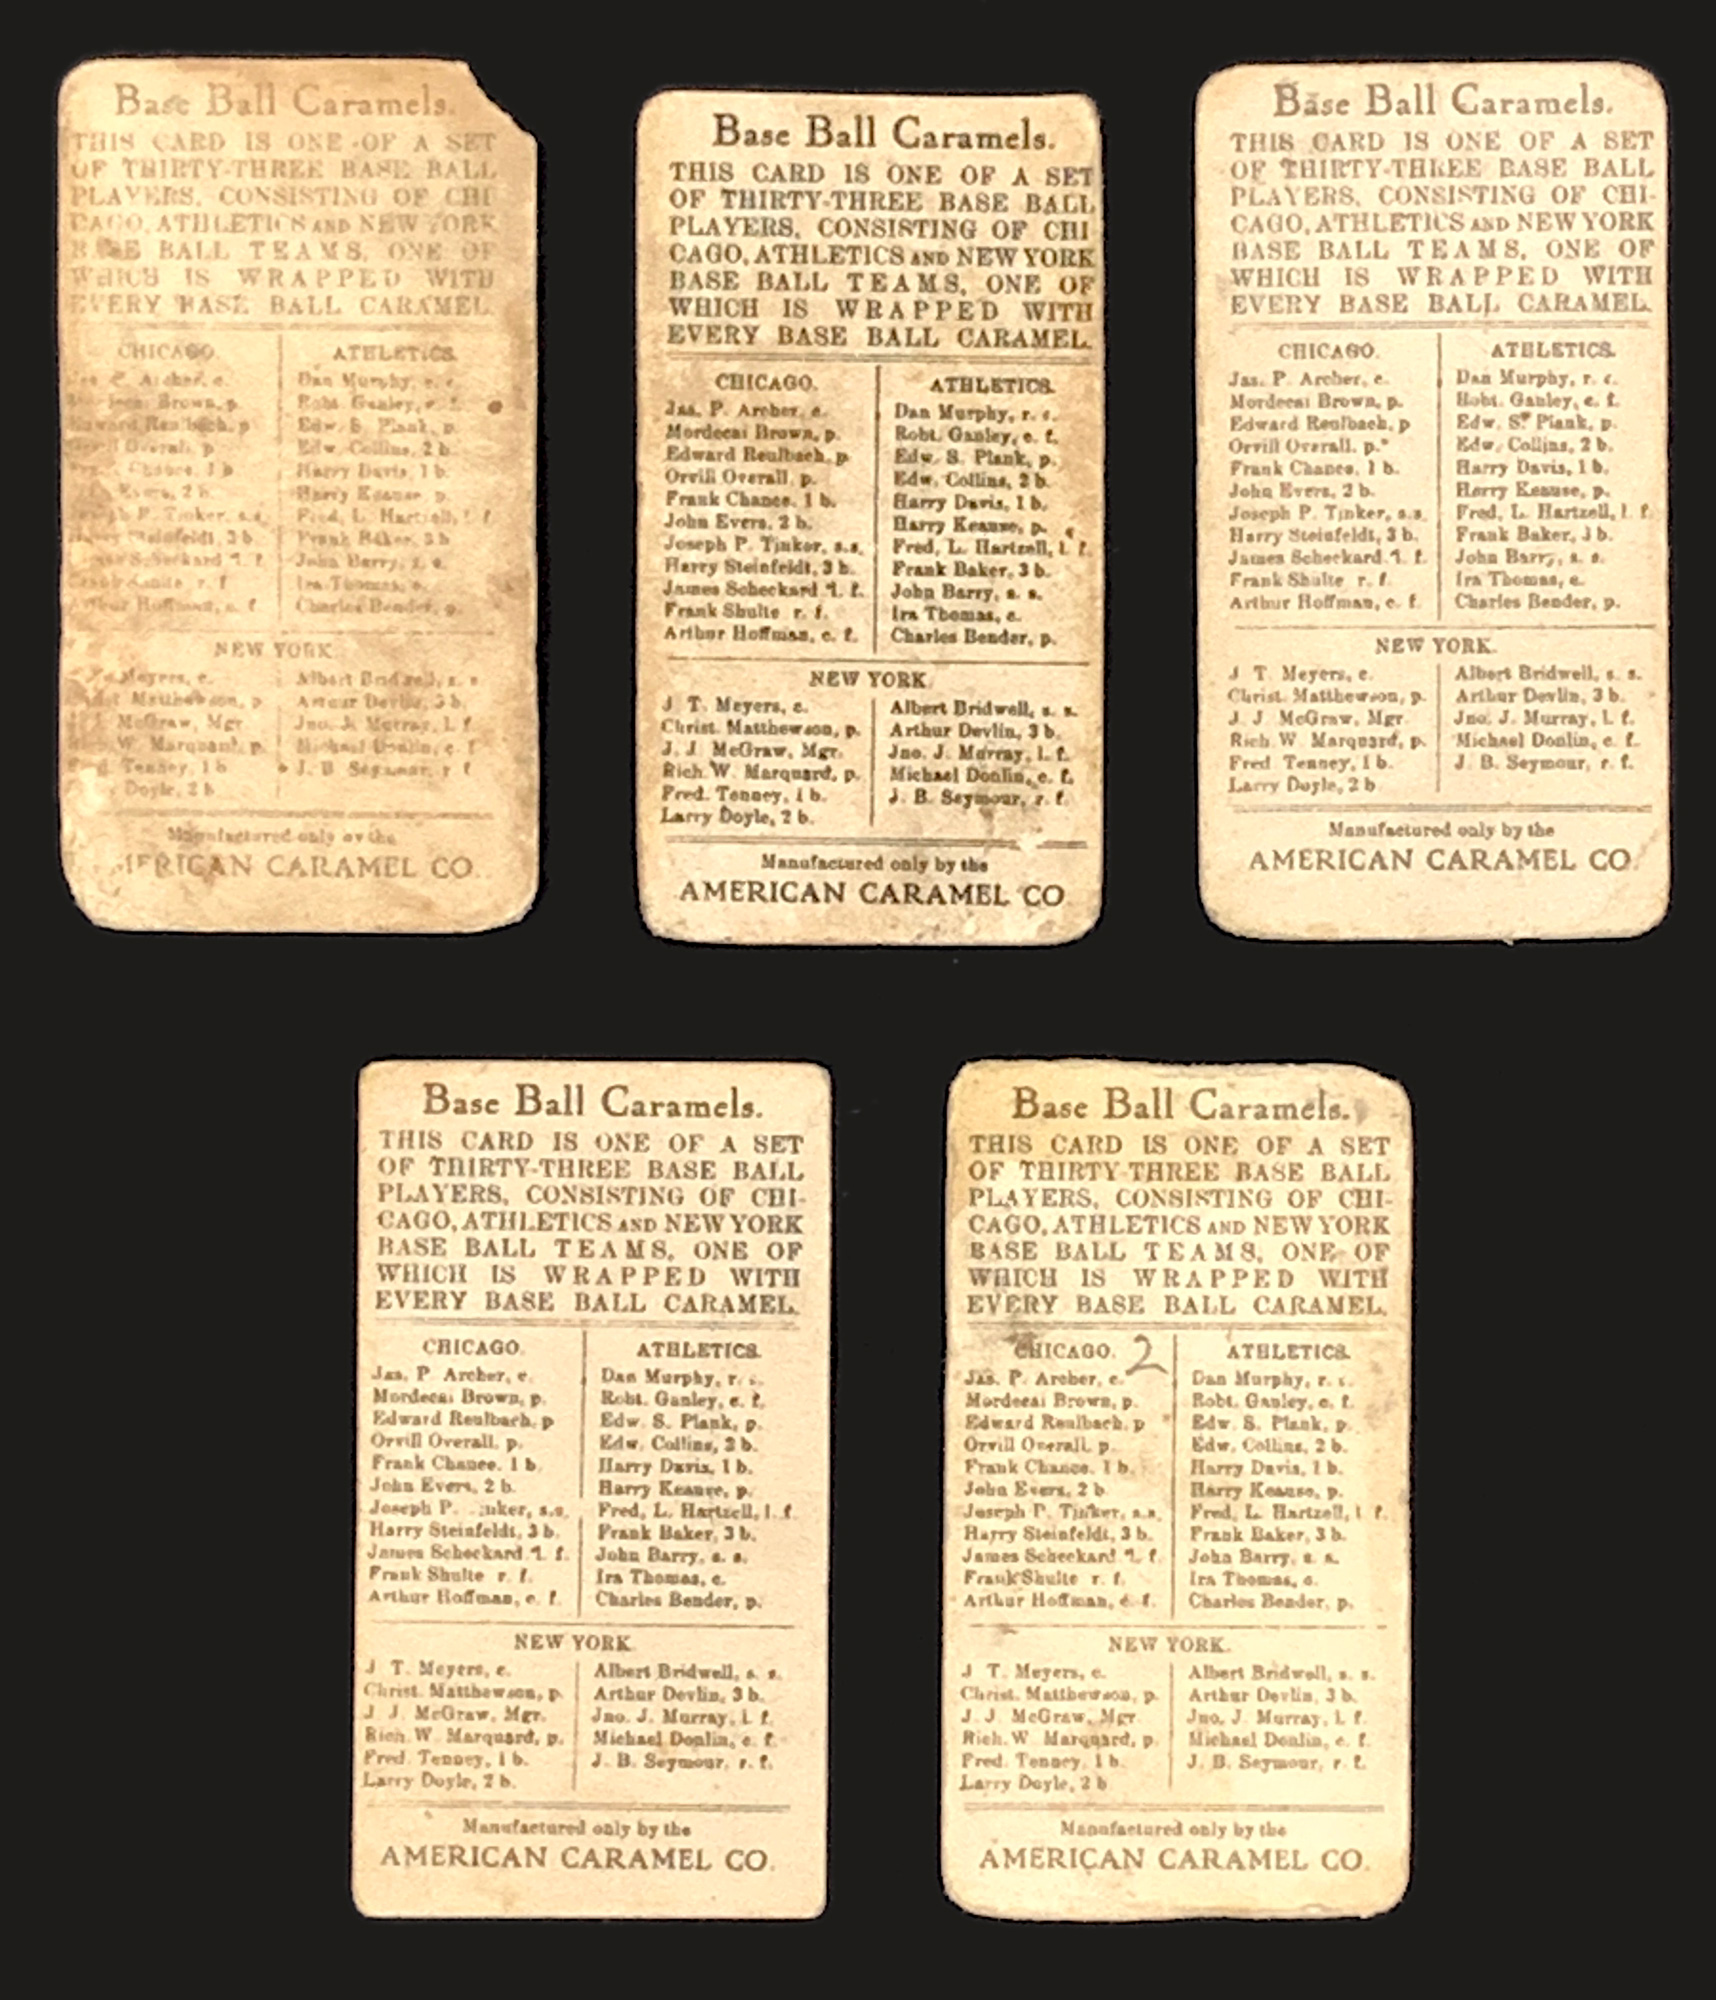 Base Ball Caramels.
THIS CARD IS ONE OF A SET
OF THIRTY-THREE BASE BALL
PLAYERS, CONSISTING OF CHI
CAGO, ATHLETICS AND NEW YORK
BASE BALL TEAMS, ONE OF
WHICH IS WRAPPED WITH
EVERY BASE BALL CARAMEL.
CHICAGO.
Archer, c.
Brown, p.
Reulbach, p
Overall, p
Chance, 1 b
Evers, 2 b.
P. Tinker, s.s.
Steinfeldt, 3 b.
Scheckard l. f.
r. f.
Hoffman, c. f.
ATHLETICS.
Dan Murphy, r. c.
Robt. Ganley, c. f.
Edw. S. Plank, p.
Edw. Collins, 2 b.
Harry Davis, 1 b.
Harry Keause p.
Fred, L. Hartzell, l. f.
Frank Baker, 3 b
John Barry, s. s.
Ira Thomas, c.
Charles Bender, p.
NEW YORK.
Meyers, c.
Matthewson, p
McGraw, Mgr
W. Marquard, p.
Tenney, 1 b
Doyle, 2 b
Albert Bridwell, s. s
Arthur Devlin, 3 b.
Jno. J. Murray, l. f
Michael Donlin, c. f
J. B Seymour, r f
Manufactured only by the
AMERICAN CARAMEL CO.
Base Ball Caramels.
THIS CARD IS ONE OF A SET
OF THIRTY-THREE BASE BALL
PLAYERS, CONSISTING OF CHI
CAGO, ATHLETICS AND NEW YORK
BASE BALL TEAMS, ONE OF
WHICH IS WRAPPED WITH
EVERY BASE BALL CARAMEL.
CHICAGO.
Jas. P. Archer, c.
Mordecai Brown, p.
Edward Reulbach, p
Orvill Overall, p.
Frank Chance, 1 b.
John Evers, 2 b.
Joseph P. Tinker, s.s.
Harry Steinfeldt, 3 b.
James Scheckard l. f.
Frank Shulte r. f.
Arthur Hoffman, c. f.
ATHLETICS.
Dan Murphy, r. c.
Robt. Ganley, c. f.
Edw. S. Plank, p.
Edw. Collins, 2 b.
Harry Davis, 1 b.
Harry Keause, p.
Fred, L. Hartzell, l. f.
Frank Baker, 3 b.
John Barry, s. s.
Ira Thomas, c.
Charles Bender, p.
NEW YORK.
J T. Meyers, c.
Christ. Matthewson, p.
J. J McGraw, Mgr.
Rich. W. Marquard, p.
Fred. Tenney, 1 b.
Larry Doyle, 2 b.
Albert Bridwell, s. s.
Arthur Devlin, 3 b.
Jno. J. Murray, l. f.
Michael Donlin, c. f.
J. B. Seymour, r. f.
Manufactured only by the
AMERICAN CARAMEL CO
Base Ball Caramels.
THIS CARD IS ONE OF A SET
OF THIRTY-THREE BASE BALL
PLAYERS, CONSISTING OF CHI-
CAGO, ATHLETICS AND NEW YORK
BASE BALL TEAMS, ONE OF
WHICH IS WRAPPED WITH
EVERY BASE BALL CARAMEL.
CHICAGO.
Jas. P. Archer, c.
Mordecai Brown, p.
Edward Reulbach, p
Orvill Overall, p.
Frank Chance, 1 b.
John Evers, 2 b.
Joseph P. Tinker, s.s.
Harry Steinfeldt, 3 b.
James Scheckard l. f.
Frank Shulte r. f.
Arthur Hoffman, c. f.
ATHLETICS.
Dan Murphy, r. c.
Robt. Ganley, c. f.
Edw. S. Plank, p.
Edw. Collins, 2 b.
Harry Davis, 1 b.
Harry Keause, p.
Fred, L. Hartzell, l. f.
Frank Baker, 3 b.
John Barry, s. s.
Ira Thomas, c.
Charles Bender, p.
NEW YORK.
J T. Meyers, c.
Christ. Matthewson, p.
J. J McGraw, Mgr
Rich. W. Marquard, p.
Fred Tenney, 1 b.
Larry Doyle, 2 b
Albert Bridwell, s. s.
Arthur Devlin, 3 b.
Jno. J. Murray, l. f.
Michael Donlin, c. f.
J. B. Seymour, r. f.
Manufactured only by the
AMERICAN CARAMEL CO.
Base Ball Caramels.
THIS CARD IS ONE OF A SET
OF THIRTY-THREE BASE BALL
PLAYERS, CONSISTING OF CHI-
CAGO, ATHLETICS AND NEW YORK
BASE BALL TEAMS, ONE OF
WHICH IS WRAPPED WITH
EVERY BASE BALL CARAMEL.
CHICAGO.
Jas. P. Archer, c.
Mordecai Brown, p.
Edward Reulbach, p
Orvill Overall, p.
Frank Chance, 1 b.
John Evers, 2 b.
Joseph P. nker, s.s.
Harry Steinfeldt, 3 b.
James Scheckard l. f.
Frank Shulte r. f.
Arthur Hoffman, c. f.
ATHLETICS.
Dan Murphy, r. c.
Robt. Ganley, c. f.
Edw. S. Plank, p.
Edw. Collins, 2 b.
Harry Davis, 1 b.
Harry Keause, p.
Fred, L. Hartzell, l. f.
Frank Baker, 3 b.
John Barry, s. s.
Ira Thomas, c.
Charles Bender, p.
NEW YORK.
J T. Meyers, c.
Christ. Matthewson, p.
J. J McGraw, Mgr.
Rich. W. Marquard, p.
Fred. Tenney, 1 b.
Larry Doyle, 2 b.
Albert Bridwell, s. s.
Arthur Devlin, 3 b.
Jno. J. Murray, l. f.
Michael Donlin, c. f.
J. B. Seymour, r. f.
Manufactured only by the
AMERICAN CARAMEL CO.
Base Ball Caramels.
THIS CARD IS ONE OF A SET
OF THIRTY-THREE BASE BALL
PLAYERS, CONSISTING OF CHI-
CAGO, ATHLETICS AND NEW YORK
BASE BALL TEAMS, ONE OF
WHICH IS WRAPPED WITH
EVERY BASE BALL CARAMEL.
CHICAGO. 2
Jas. P. Archer, c.
Mordecai Brown, p.
Edward Reulbach, p
Orvill Overall, p.
Frank Chance, 1 b.
John Evers, 2 b.
Joseph P. Tinker, s.s.
Harry Steinfeldt, 3 b.
James Scheckard l. f.
Frank Shulte r. f.
Arthur Hoffman, c. f.
ATHLETICS.
Dan Murphy, r. c.
Robt. Ganley, c. f.
Edw. S. Plank, p.
Edw. Collins, 2 b.
Harry Davis, 1 b.
Harry Keause, p.
Fred, L. Hartzell, l f.
Frank Baker, 3 b.
John Barry, s. s.
Ira Thomas, c.
Charles Bender, p.
NEW YORK.
J T. Meyers, c.
Christ. Matthewson, p.
J. J McGraw, Mgr
Rich. W. Marquard, p.
Fred. Tenney, 1 b.
Larry Doyle, 2 b
Albert Bridwell, s. s.
Arthur Devlin, 3 b.
Jno. J. Murray, l. f.
Michael Donlin, c. f.
J. B. Seymour, r. f.
Manufactured only by the
AMERICAN CARAMEL CO.